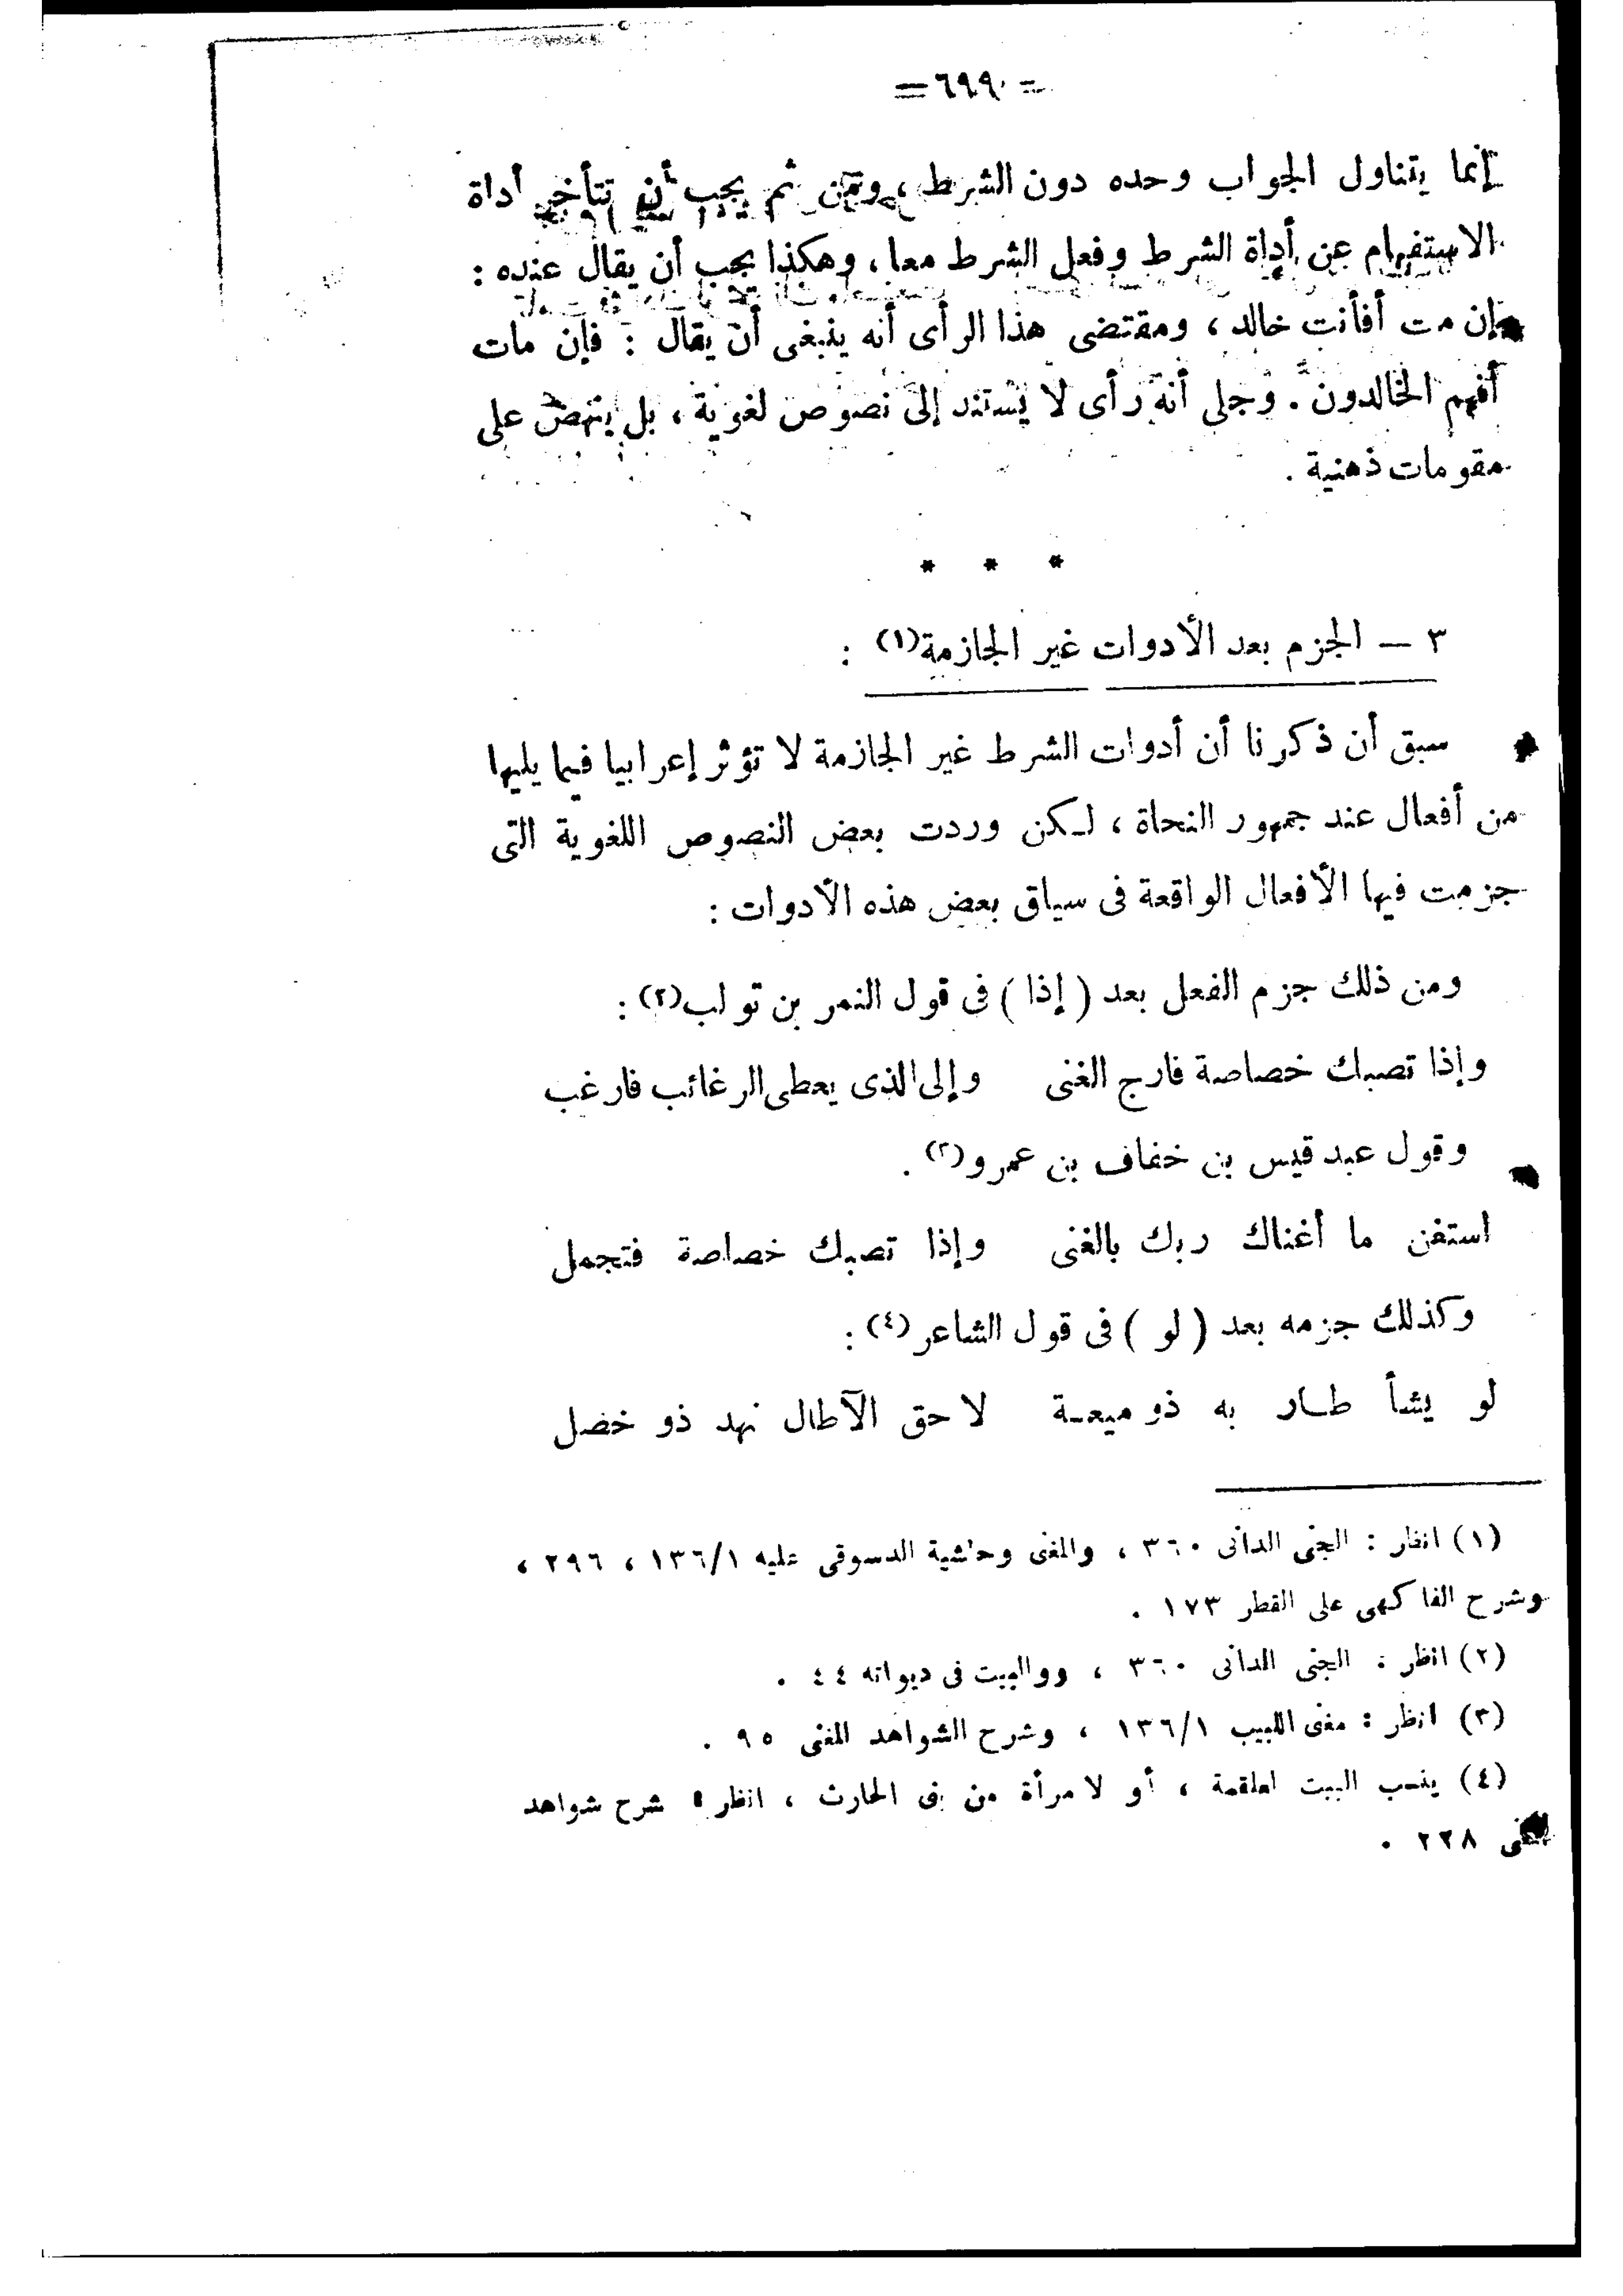 = ٦٩٩ =
إنما يتناول الجواب وحده دون الشرط ، ومن ثم يجب أن تتأخر أداة
الاستفهام عن أداة الشرط وفعل الشرط معا ، وهكذا يجب أن يقال عنده :
إن مت أفأنت خالد ، ومقتضى هذا الرأى أنه ينبغى أن يقال : فإن مات
أفهم الخالدون . وجلى أنه رأى لا يستند إلى نصوص لغوية ، بل ينهض على
مقومات ذهنية .
* * *
٣ – الجزم بعد الأدوات غير الجازمة (١) :
سبق أن ذكرنا أن أدوات الشرط غير الجازمة لا تؤثر إعرابيا فيما يليها
من أفعال عند جمهور النحاة ، لكن وردت بعض النصوص اللغوية التى
جزمت فيها الأفعال الواقعة فى سياق بعض هذه الأدوات :
ومن ذلك جزم الفعل بعد ( إذا ) فى قول النمر بن تولب (٢) :
وإذا تصبك خصاصة فارج الغنى وإلى الذى يعطى الرغائب فارغب
وقول عبد قيس بن خفاف بن عمرو (٣) .
استغن ما أغناك ربك بالغنى وإذا تصبك خصاصة فتجمل
وكذلك جزمه بعد ( لو ) فى قول الشاعر (٤) :
لو يشأ طار به ذو ميعة لاحق الآطال نهد ذو خصل
(١) انظر : الجنى الدانى ٣٦٠ ، والمغنى وحاشية الدسوقى عليه ١/١٣٦ ، ٢٩٦ ،
وشرح الفاكهى على القطر ١٧٣ .
(٢) انظر : الجنى الدانى ٣٦٠ ، ووالبيت فى ديوانه ٤٤ .
(٣) انظر : مغنى اللبيب ١/١٣٦ ، وشرح الشواهد المغنى ٩٥ .
(٤) ينسب البيت لعلقمة ، أو لامرأة من بنى الحارث ، انظر : شرح شواهد
المغنى ٢٢٨ .